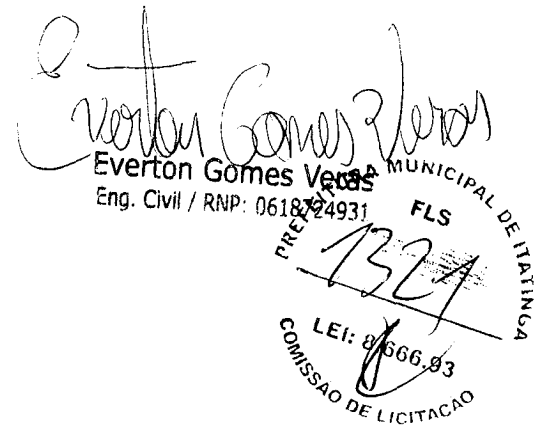 Everton Gomes Veras
Everton Gomes Veras
Eng. Civil / RNP: 0618724931
PREFEITURA MUNICIPAL DE ITATINGA
FLS
1321
LEI: 8.666.93
COMISSAO DE LICITACAO